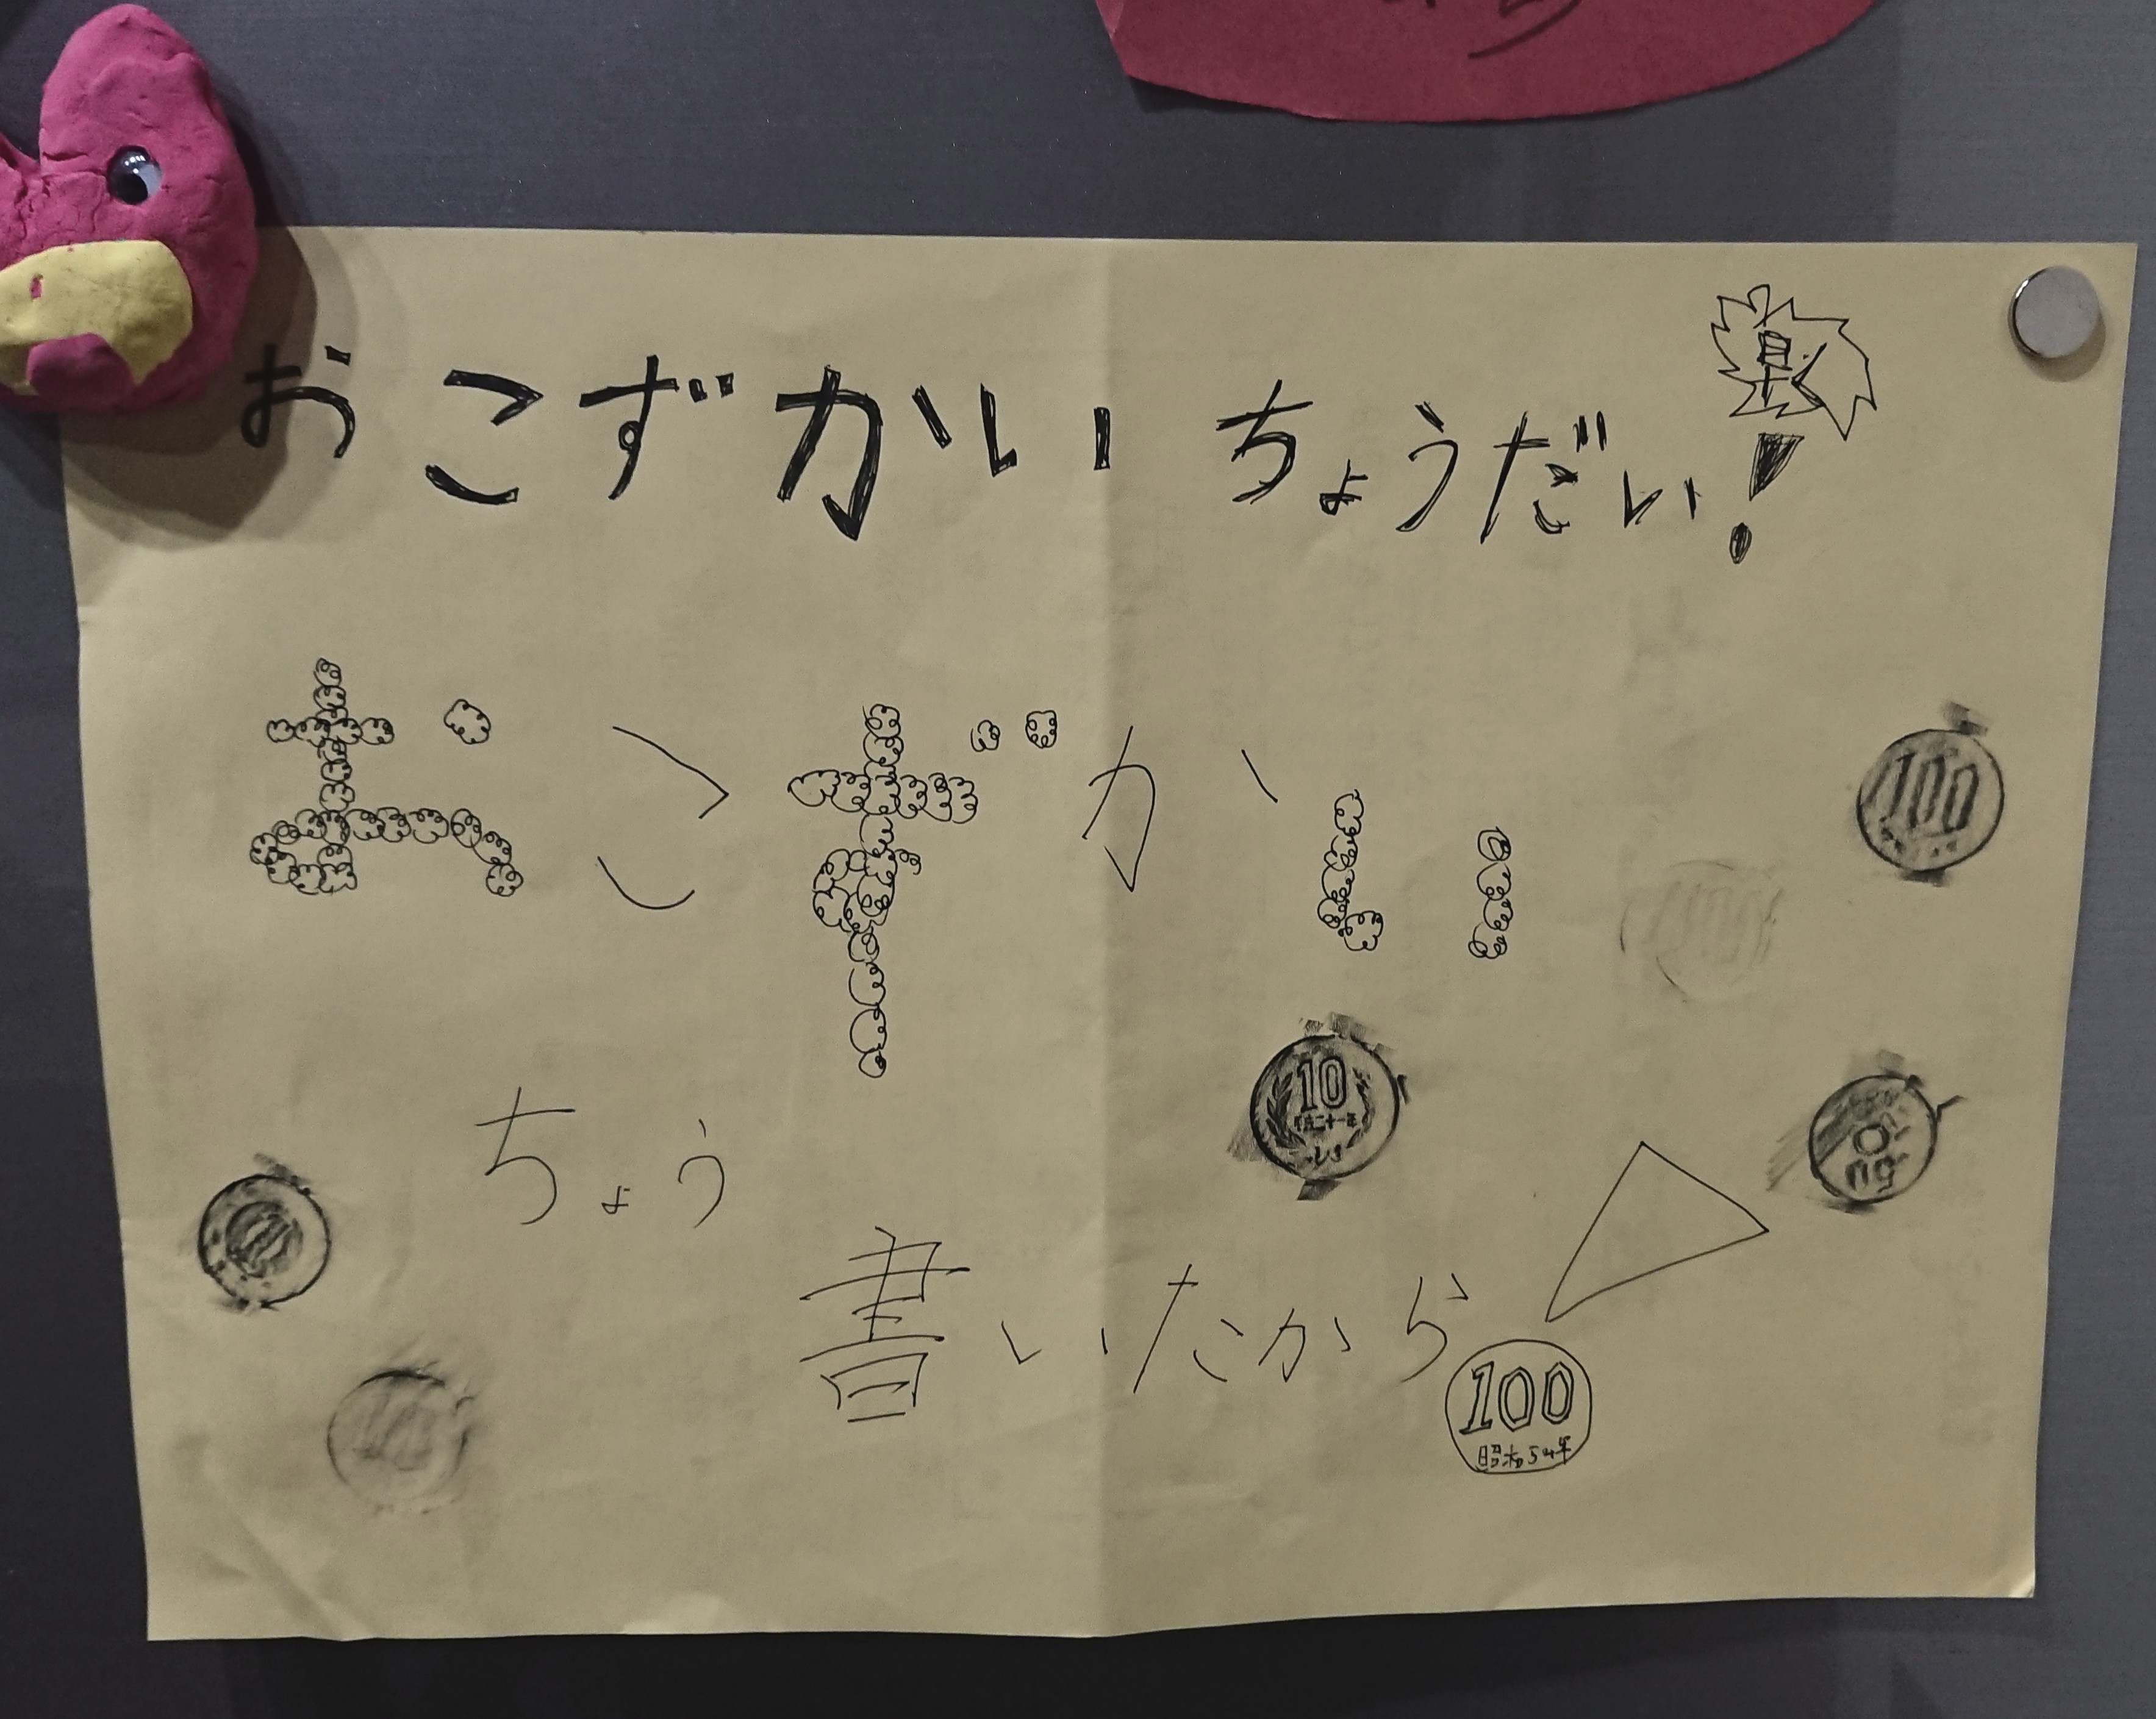 おこずかいちょうだい!
おこずかい
100
10
ちょう
書いたから
100
昭和54年